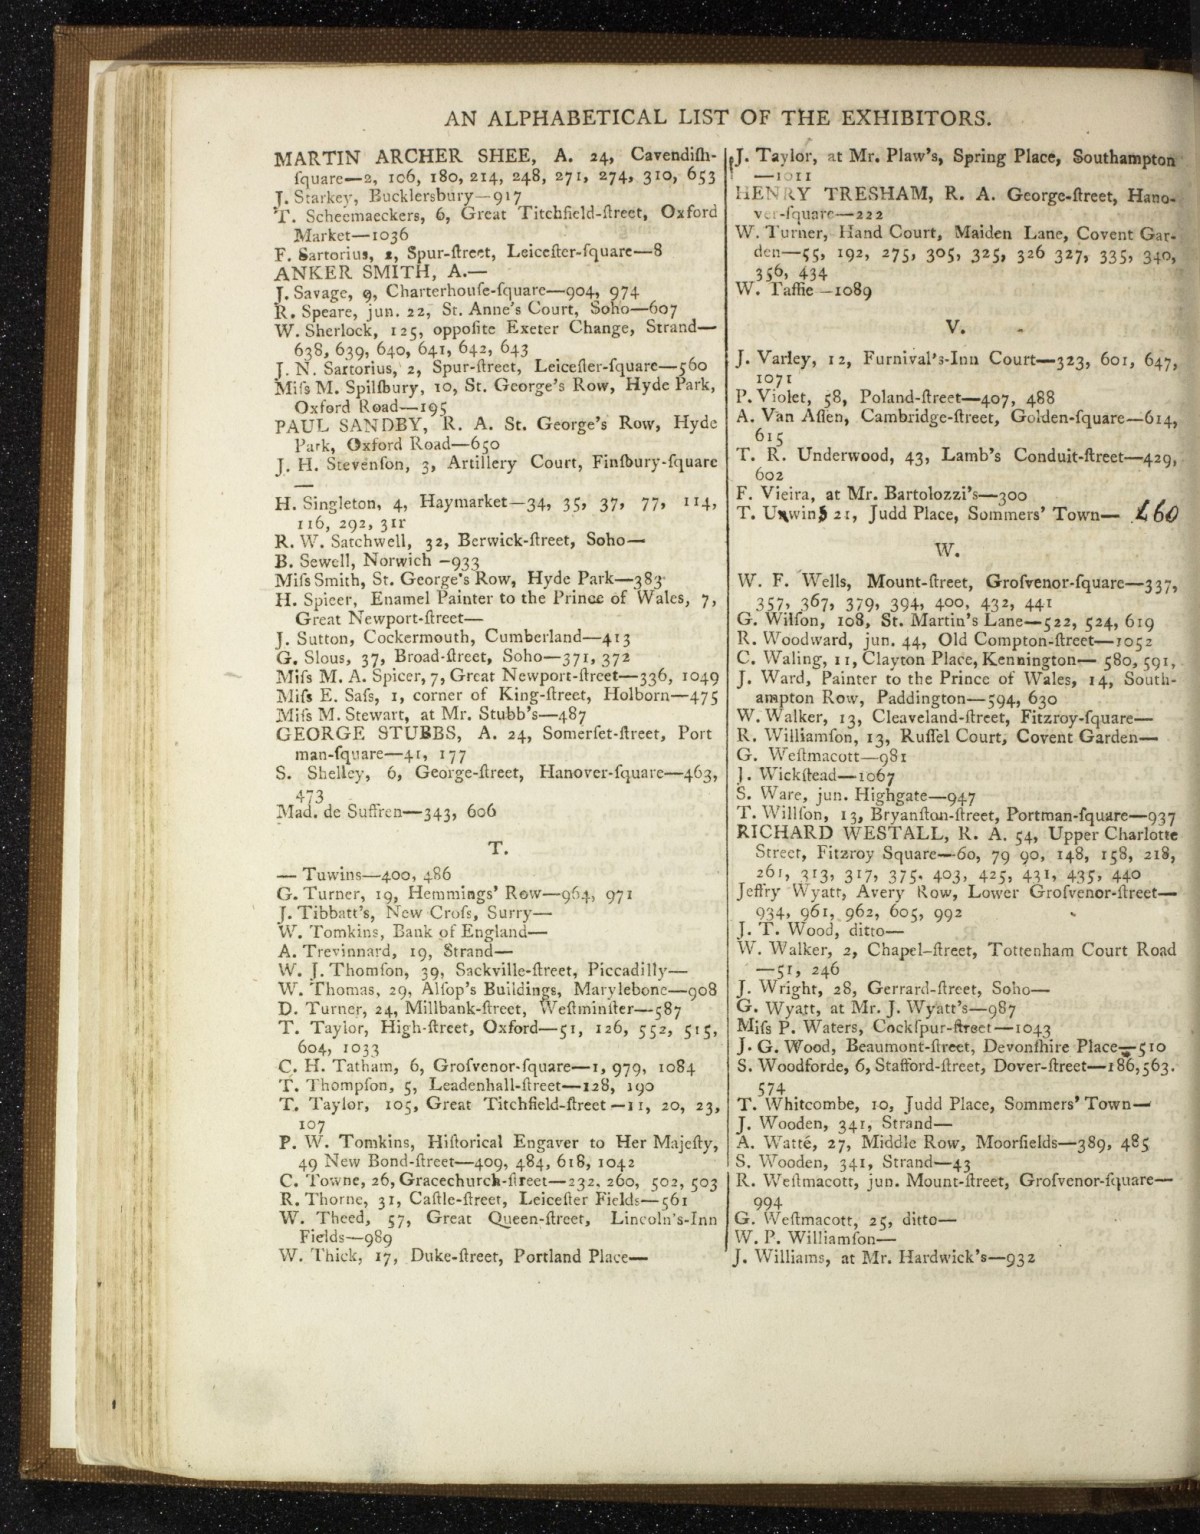 AN ALPHABETICAL LIST OF THE EXHIBITORS.
MARTIN ARCHER SHEE, A. 24, Cavendiſh-
ſquare—2, 106, 180, 214, 248, 271, 274, 310, 653
J. Starkey, Bucklersbury—917
T. Scheemaeckers, 6, Great Titchfield-ſtreet, Oxford
Market—1036
F. Sartorius, 2, Spur-ſtreet, Leiceſter-ſquare—8
ANKER SMITH, A.—
J. Savage, 9, Charterhouſe-ſquare—904, 974
R. Speare, jun. 22, St. Anne's Court, Soho—607
W. Sherlock, 125, oppoſite Exeter Change, Strand—
638, 639, 640, 641, 642, 643
J. N. Sartorius, 2, Spur-ſtreet, Leiceſter-ſquare—560
Miſs M. Spilſbury, 10, St. George's Row, Hyde Park,
Oxford Road—195
PAUL SANDBY, R. A. St. George's Row, Hyde
Park, Oxford Road—650
J. H. Stevenſon, 3, Artillery Court, Finſbury-ſquare
—
H. Singleton, 4, Haymarket—34, 35, 37, 77, 114,
116, 292, 311
R. W. Satchwell, 32, Berwick-ſtreet, Soho—
B. Sewell, Norwich —933
Miſs Smith, St. George's Row, Hyde Park—383
H. Spicer, Enamel Painter to the Prince of Wales, 7,
Great Newport-ſtreet—
J. Sutton, Cockermouth, Cumberland—413
G. Slous, 37, Broad-ſtreet, Soho—371, 372
Miſs M. A. Spicer, 7, Great Newport-ſtreet—336, 1049
Miſs E. Saſs, 1, corner of King-ſtreet, Holborn—475
Miſs M. Stewart, at Mr. Stubb's—487
GEORGE STUBBS, A. 24, Somerſet-ſtreet, Port
man-ſquare—41, 177
S. Shelley, 6, George-ſtreet, Hanover-ſquare—463,
473
Mad. de Suffren—343, 606
T.
— Tuwins—400, 486
G. Turner, 19, Hemmings' Row—964, 971
J. Tibbatt's, New Croſs, Surry—
W. Tomkins, Bank of England—
A. Trevinnard, 19, Strand—
W. J. Thomſon, 39, Sackville-ſtreet, Piccadilly—
W. Thomas, 29, Alſop's Buildings, Marylebone—908
D. Turner, 24, Millbank-ſtreet, Weſtminſter—587
T. Taylor, High-ſtreet, Oxford—51, 126, 552, 515,
604, 1033
C. H. Tatham, 6, Groſvenor-ſquare—1, 979, 1084
T. Thompſon, 5, Leadenhall-ſtreet—128, 190
T. Taylor, 105, Great Titchfield-ſtreet—11, 20, 23,
107
P. W. Tomkins, Hiſtorical Engaver to Her Majeſty,
49 New Bond-ſtreet—409, 484, 618, 1042
C. Towne, 26, Gracechurch-ſtreet—232, 260, 502, 503
R. Thorne, 31, Caſtle-ſtreet, Leiceſter Fields—561
W. Theed, 57, Great Queen-ſtreet, Lincoln's-Inn
Fields—989
W. Thick, 17, Duke-ſtreet, Portland Place—
J. Taylor, at Mr. Plaw's, Spring Place, Southampton
—1011
HENRY TRESHAM, R. A. George-ſtreet, Hano-
ver-ſquare—222
W. Turner, Hand Court, Maiden Lane, Covent Gar-
den—55, 192, 275, 305, 325, 326 327, 335, 340,
356, 434
W. Taſſie —1089
V.
J. Varley, 12, Furnival's-Inn Court—323, 601, 647,
1071
P. Violet, 58, Poland-ſtreet—407, 488
A. Van Aſſen, Cambridge-ſtreet, Golden-ſquare—614,
615
T. R. Underwood, 43, Lamb's Conduit-ſtreet—429,
602
F. Vieira, at Mr. Bartolozzi's—300
T. Unwins 21, Judd Place, Sommers' Town— 460
W.
W. F. Wells, Mount-ſtreet, Groſvenor-ſquare—337,
357, 367, 379, 394, 400, 432, 441
G. Wilſon, 108, St. Martin's Lane—522, 524, 619
R. Woodward, jun. 44, Old Compton-ſtreet—1052
C. Waling, 11, Clayton Place, Kennington— 580, 591,
J. Ward, Painter to the Prince of Wales, 14, South-
ampton Row, Paddington—594, 630
W. Walker, 13, Cleaveland-ſtreet, Fitzroy-ſquare—
R. Williamſon, 13, Ruſſel Court, Covent Garden—
G. Weſtmacott—981
J. Wickſtead—1067
S. Ware, jun. Highgate—947
T. Willſon, 13, Bryanſton-ſtreet, Portman-ſquare—937
RICHARD WESTALL, R. A. 54, Upper Charlotte
Street, Fitzroy Square—60, 79 90, 148, 158, 218,
261, 313, 317, 375. 403, 425, 431, 435, 440
Jeffry Wyatt, Avery Row, Lower Groſvenor-ſtreet—
934, 961, 962, 605, 992
J. T. Wood, ditto—
W. Walker, 2, Chapel-ſtreet, Tottenham Court Road
—51, 246
J. Wright, 28, Gerrard-ſtreet, Soho—
G. Wyatt, at Mr. J. Wyatt's—987
Miſs P. Waters, Cockſpur-ſtreet—1043
J. G. Wood, Beaumont-ſtreet, Devonſhire Place—510
S. Woodforde, 6, Stafford-ſtreet, Dover-ſtreet—186, 563.
574
T. Whitcombe, 10, Judd Place, Sommers' Town—
J. Wooden, 341, Strand—
A. Watté, 27, Middle Row, Moorfields—389, 485
S. Wooden, 341, Strand—43
R. Weſtmacott, jun. Mount-ſtreet, Groſvenor-ſquare—
994
G. Weſtmacott, 25, ditto—
W. P. Williamſon—
J. Williams, at Mr. Hardwick's—932